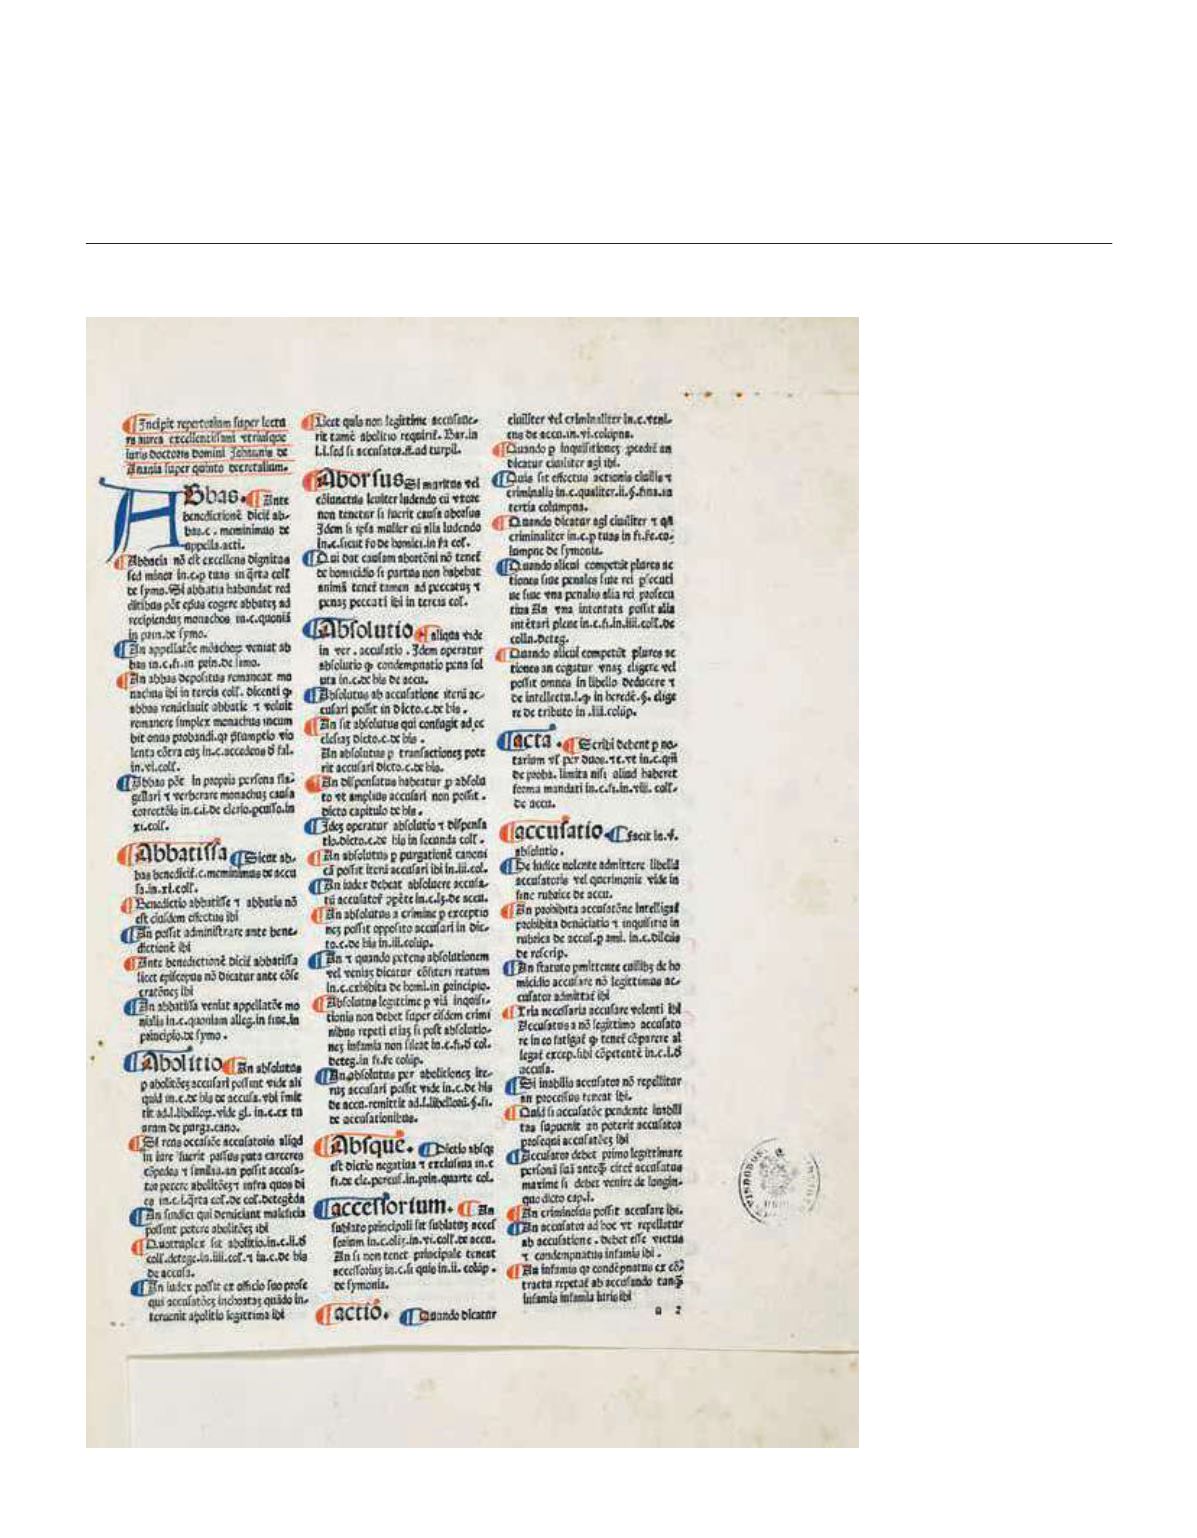 Incipit repertorium super lectu
ra aurea excellentissimi vtriusque
iuris doctoris domini Johannis de
Anania super quinto decretalium.
Abbas. Ante
benedictionē dicit̄ ab-
bas.c. meminimus de
appella.acti.
Abbacia nō est excellens dignitas
sed minor in.c.p tuas in q̄rta coll̄
de symo. Si abbatia habundat red
ditibus pōt ep̄us cogere abbateʒ ad
recipienduʒ monachos in.c.quoniā
in prin.de symo.
An appellatōe mōachoꝝ veniat ab
bas in.c.fi.in prin.de simo.
An abbas depositus remaneat mo
nachus ibi in tercia coll̄. dicenti ꝙ
abbas renūciauit abbatie ⁊ voluit
romanere simplex monachus incum
bit onus probandi.qꝛ p̄sumptio vio
lenta cōtra eūʒ in.c.accedens d̄ fal.
in.vi.coll̄.
Abbas pōt in propria persona fla-
gellari ⁊ verberare monachuʒ causa
correctōis in.c.i.de cleric.pcusso.in
xi.coll̄.
Abbatissa Sicut ab-
bas benedicit̄.c.meminimus de accu
sa.in.xi.coll̄.
Benedictio abbatisse ⁊ abbatis nō
est eiusdem effectus ibi
An possit administrare ante bene-
dictionē ibi
Ante benedictionē dicit̄ abbatissa
licet episcopus nō dicatur ante cōse
cratōneʒ ibi
An abbatissa veniat appellatōe mo
nialis in.c.quoniam alleg.in fine.in
principio.de symo.
Abolitio An absolutus
p abolitōeʒ accusari possint vide ali
quid in.c.de his de accusa.vbi
rit ad.l.libelloꝝ.vide gl. in.c.ex tu
arum de purga.cano.
Si reus occasiōe accusatoria aliqd
in iure fuerit passus puta carceres
cōpedes ⁊ similia.an possit accusa-
tor petere abolitōeʒ ⁊ infra quos di
es in.c.i.q̄rta col̄.de coll̄.detegēda
An sindici qui denūciant maleficia
possint petere abolitōeʒ ibi
Quotruplex sit abolitio.in.c.ii.d̄
coll̄.detege.in.iiii.col̄.⁊ in.c.de his
de accusa.
An iudex possit ex officio suo prose
qui accusatōeʒ inchoataʒ quādo in-
teruenit abolitio legittima ibi
Licet quis non legittime accusaue-
rit tamē abolitio requirit̄. Bar.in
l.i.sed si accusator.ff.ad turpil.
Aborsus Si maritus vel
cōiunctus leuiter ludendo cū vxore
non tenetur si fuerit causa aborsus
Idem si ipsa mulier cū alia ludendo
in.c.sicut de homici.in col̄.
Qui dat causam abortōni nō tenet̄
de homicidio si partus non habebat
animā tenet̄ tamen ad peccatuʒ ⁊
penaʒ peccati ibi in tercia col̄.
Absolutio aliqua vide
in ver. accusatio. Idem operatur
absolutio ꝙ condempnatio pena sol
uta in.c.de his de accu.
Absolutus ab accusatione iterū ac-
cusari possit in dicto.c.de his.
An sit absolutus qui confugit ad ec
clesiaʒ dicto.c.de his.
An absolutus p transactioneʒ pote
rit accusari dicto.c.de his.
An dispensatus habeatur p absolu
to vt amplius accusari non possit.
dicto capitulo de his.
Ideʒ operatur absolutio ⁊ dispensa
tio.dicto.c.de his in secunda coll̄.
An absolutus p purgationē canoni
cā possit iterū accusari ibi in.iii.col.
An iudex debeat absoluere accusa-
tū in.c.lʒ.de accu.
An absolutus a crimine p exceptio
neʒ possit opposito accusari in dic-
to.c.de his in.iii.colūp.
An ⁊ quando petens absolutionem
vel veniaʒ dicatur cōfiteri reatum
in.c.exhibita de homi.in principio.
Absolutus legittime p viā inquisi-
tionis non debet super eisdem crimi
nibus repeti etiaʒ si post absolutio-
neʒ infamia non sileat in.c.fi.d̄ col.
deteg.in fi. colūp.
An absolutus per abolitioneʒ ite-
ruʒ accusari possit vide in.c.de his
de accu.remittit ad.l.libelloꝝ.§.fi.
de accusationibus.
Absque. Dictio absqꝫ
est dictio negatiua ⁊ exclusiua in.c
fi.de cle.percus.in.prin.quarte col.
accessorium. An
sublato principali sit sublatuʒ accesˉ
sorium in.c.olīʒ.in.vi.coll̄.de accu.
An si non tenet principale teneat
accessoriuʒ in.c.si quis in.ii. colūp.
de symonia.
actio. Quando dicatur
ciuiliter vel criminaliter in.c.veni-
ens de accu.in.vi.colūpna.
Quando p inquisitioneʒ pcedit̄ an
dicatur ciuiliter agi ibi.
Quis sit effectus actionis ciuilis ⁊
criminalis in.c.qualiter.ii.§.fina.in
tertia columpna.
Quando dicatur agi ciuiliter ⁊ qn̄
criminaliter in.c.p tuas in fi. co-
lumpne de symonia.
Quando alicui competūt plures ac
tiones siue penales siue rei psecuti
ue siue vna penalis alia rei prosecu
tiua An vna intentata possit alia
intētari plene in.c.fi.in.iiii.coll̄.de
colla.deteg.
Quando alicui competūt plures ac
tiones an cogatur vnaʒ eligere vel
possit omnes in libello deducere ⁊
de intellectu.l.ꝙ in herede.§. elige
re de tributo in .iii.colūp.
acta. Scribi debent p no-
tarium vl̄ per duos.⁊c.vt in.c.qm̄
de proba. limita nisi aliud haberet
forma mandati in.c.fi.in.viii. coll̄.
de accu.
accusatio. facit in.v̄.
absolutio.
De iudice nolente admittere libellū
accusatoris vel querimonie vide in
fine rubrice de accu.
An prohibita accusatōne intelligat̄
prohibita denūciatio ⁊ inquisitio in
rubrica de accus.p ami. in.c.dilectis
de rescrip.
An statuto pmittente cuilibʒ de ho
micidio accusare nō legittimus ac-
cusator admittat̄ ibi
Tria necessaria accusare volenti ibi
Accusatus a nō legittimo accusato
re in eo fatigat̄ ꝙ tenet̄ cōparere al
legat̄ excep.sibi cōpetentē in.c.i.d̄
accusa.
Si inabilis accusator nō repellitur
an processus teneat ibi.
Quid si accusatōe pendente inabili
tas supuenit an poterit accusator
prosequi accusatōeʒ ibi
Accusator debet primo legittimare
personā suā anteꝗ̄ citet̄ accusatus
maxime si debet venire de longin-
quo dicto cap.i.
An criminosus possit accusare ibi.
An accusator ad hoc vt repellatur
ab accusatione. debet esse victus
⁊ condempnatus infamis ibi.
An infamis qꝛ condēpnatus ex cō-
tractu repetat̄ ab accusando tanꝗ̄
infamis infamia iuris ibi
a 2